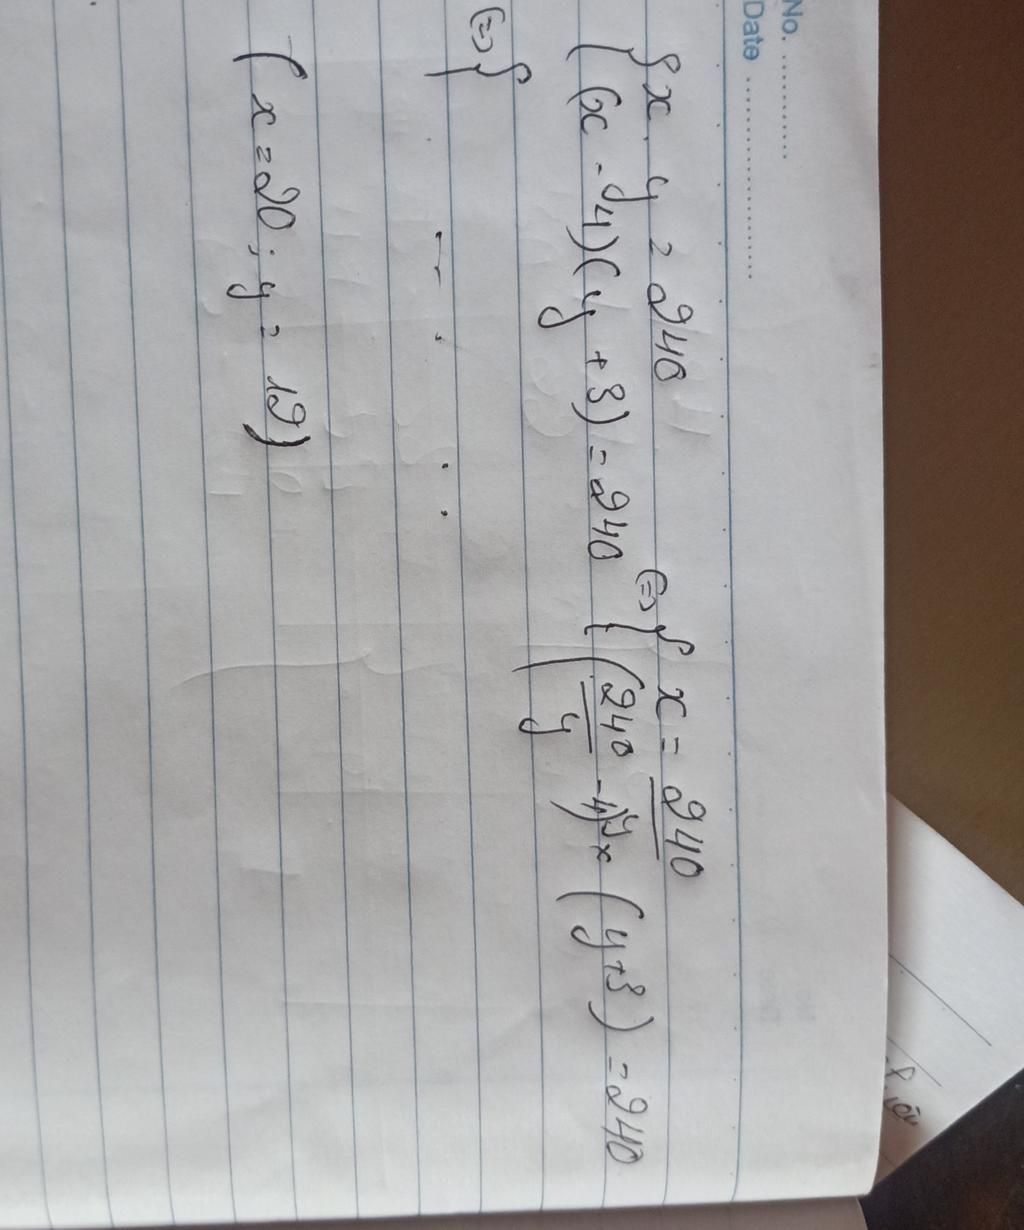 No. ............
Date ........................
{ x . y = 240
(x - 4)(y + 3) = 240
<=> { x = 240
(240/y - 4) x (y+3) = 240
<=> {
(x = 20 ; y = 12)